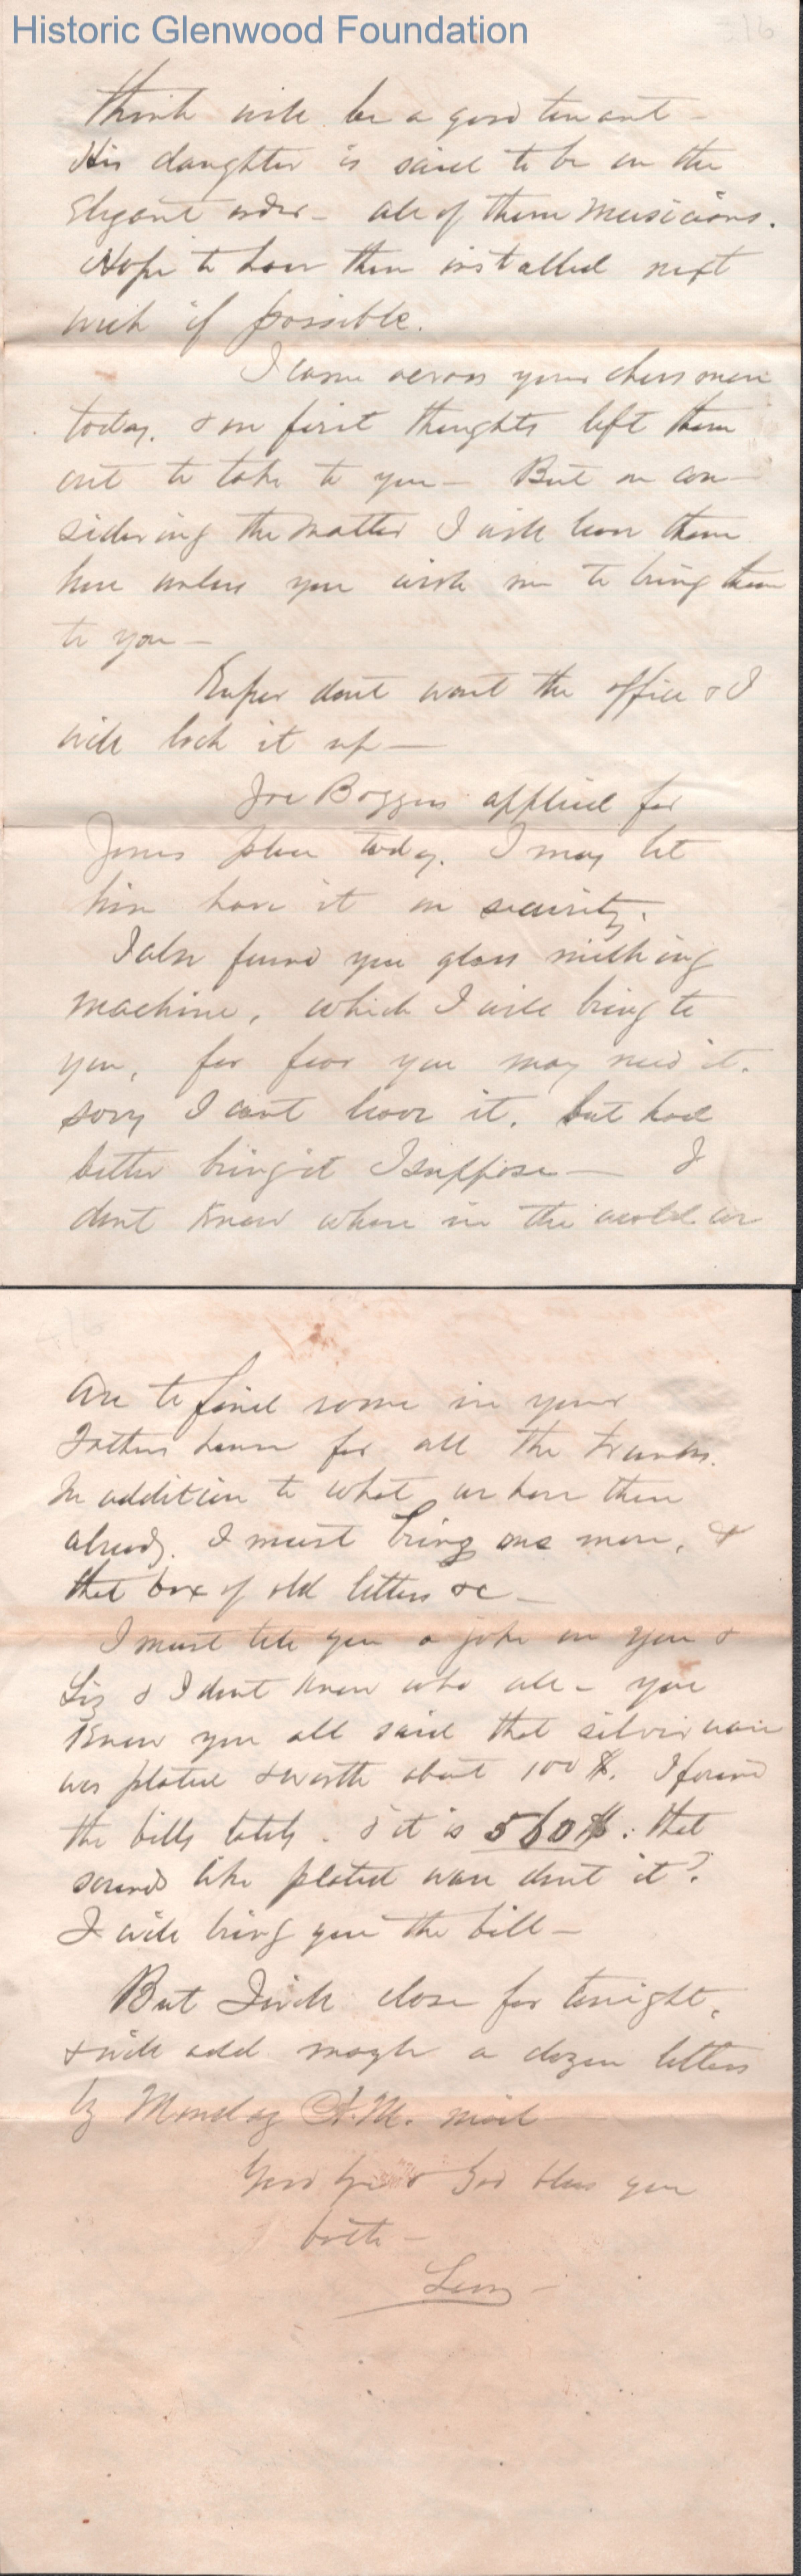 Historic Glenwood Foundation
think will be a good tenant -
His daughter is said to be on the
Elegant order - all of them musicians.
Hope to have them installed next
week if possible.
I came across your chess men
today. & on first thoughts left them
out to take to you - But on con-
sidering the matter I will leave them
here unless you wish me to bring them
to you -
don't want the office & I
will lock it up -
Joe Boggess applied for
Jones place today. I may let
him have it on security.
I also found you glass milking
machine, which I will bring to
you, for fear you may need it.
sorry I can't leave it. but had
better bring it I suppose - I
don't know where in the world we
are to find room in your
Fathers house for all the trunks.
In addition to what we have there
already. I must bring one more, &
that box of old letters &c -
I must tell you a joke on you &
Liz & I don't know who all - you
know you all said that silver ware
was plated & worth about 100$. I found
the bills lately. & it is 560$: that
sounds like plated ware don't it?
I will bring you the bill -
But I will close for tonight,
& will add maybe a dozen letters
by Monday A.M. mail
Good bye & God bless you
both -